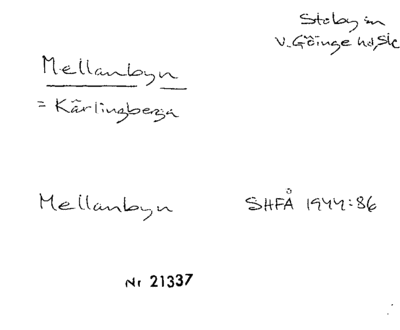 Stoby sn
V. Göinge hd, Sk
Mellanbyn
= Kärlingberga
Mellanbyn SHFÅ 1944:86
Nr 21337